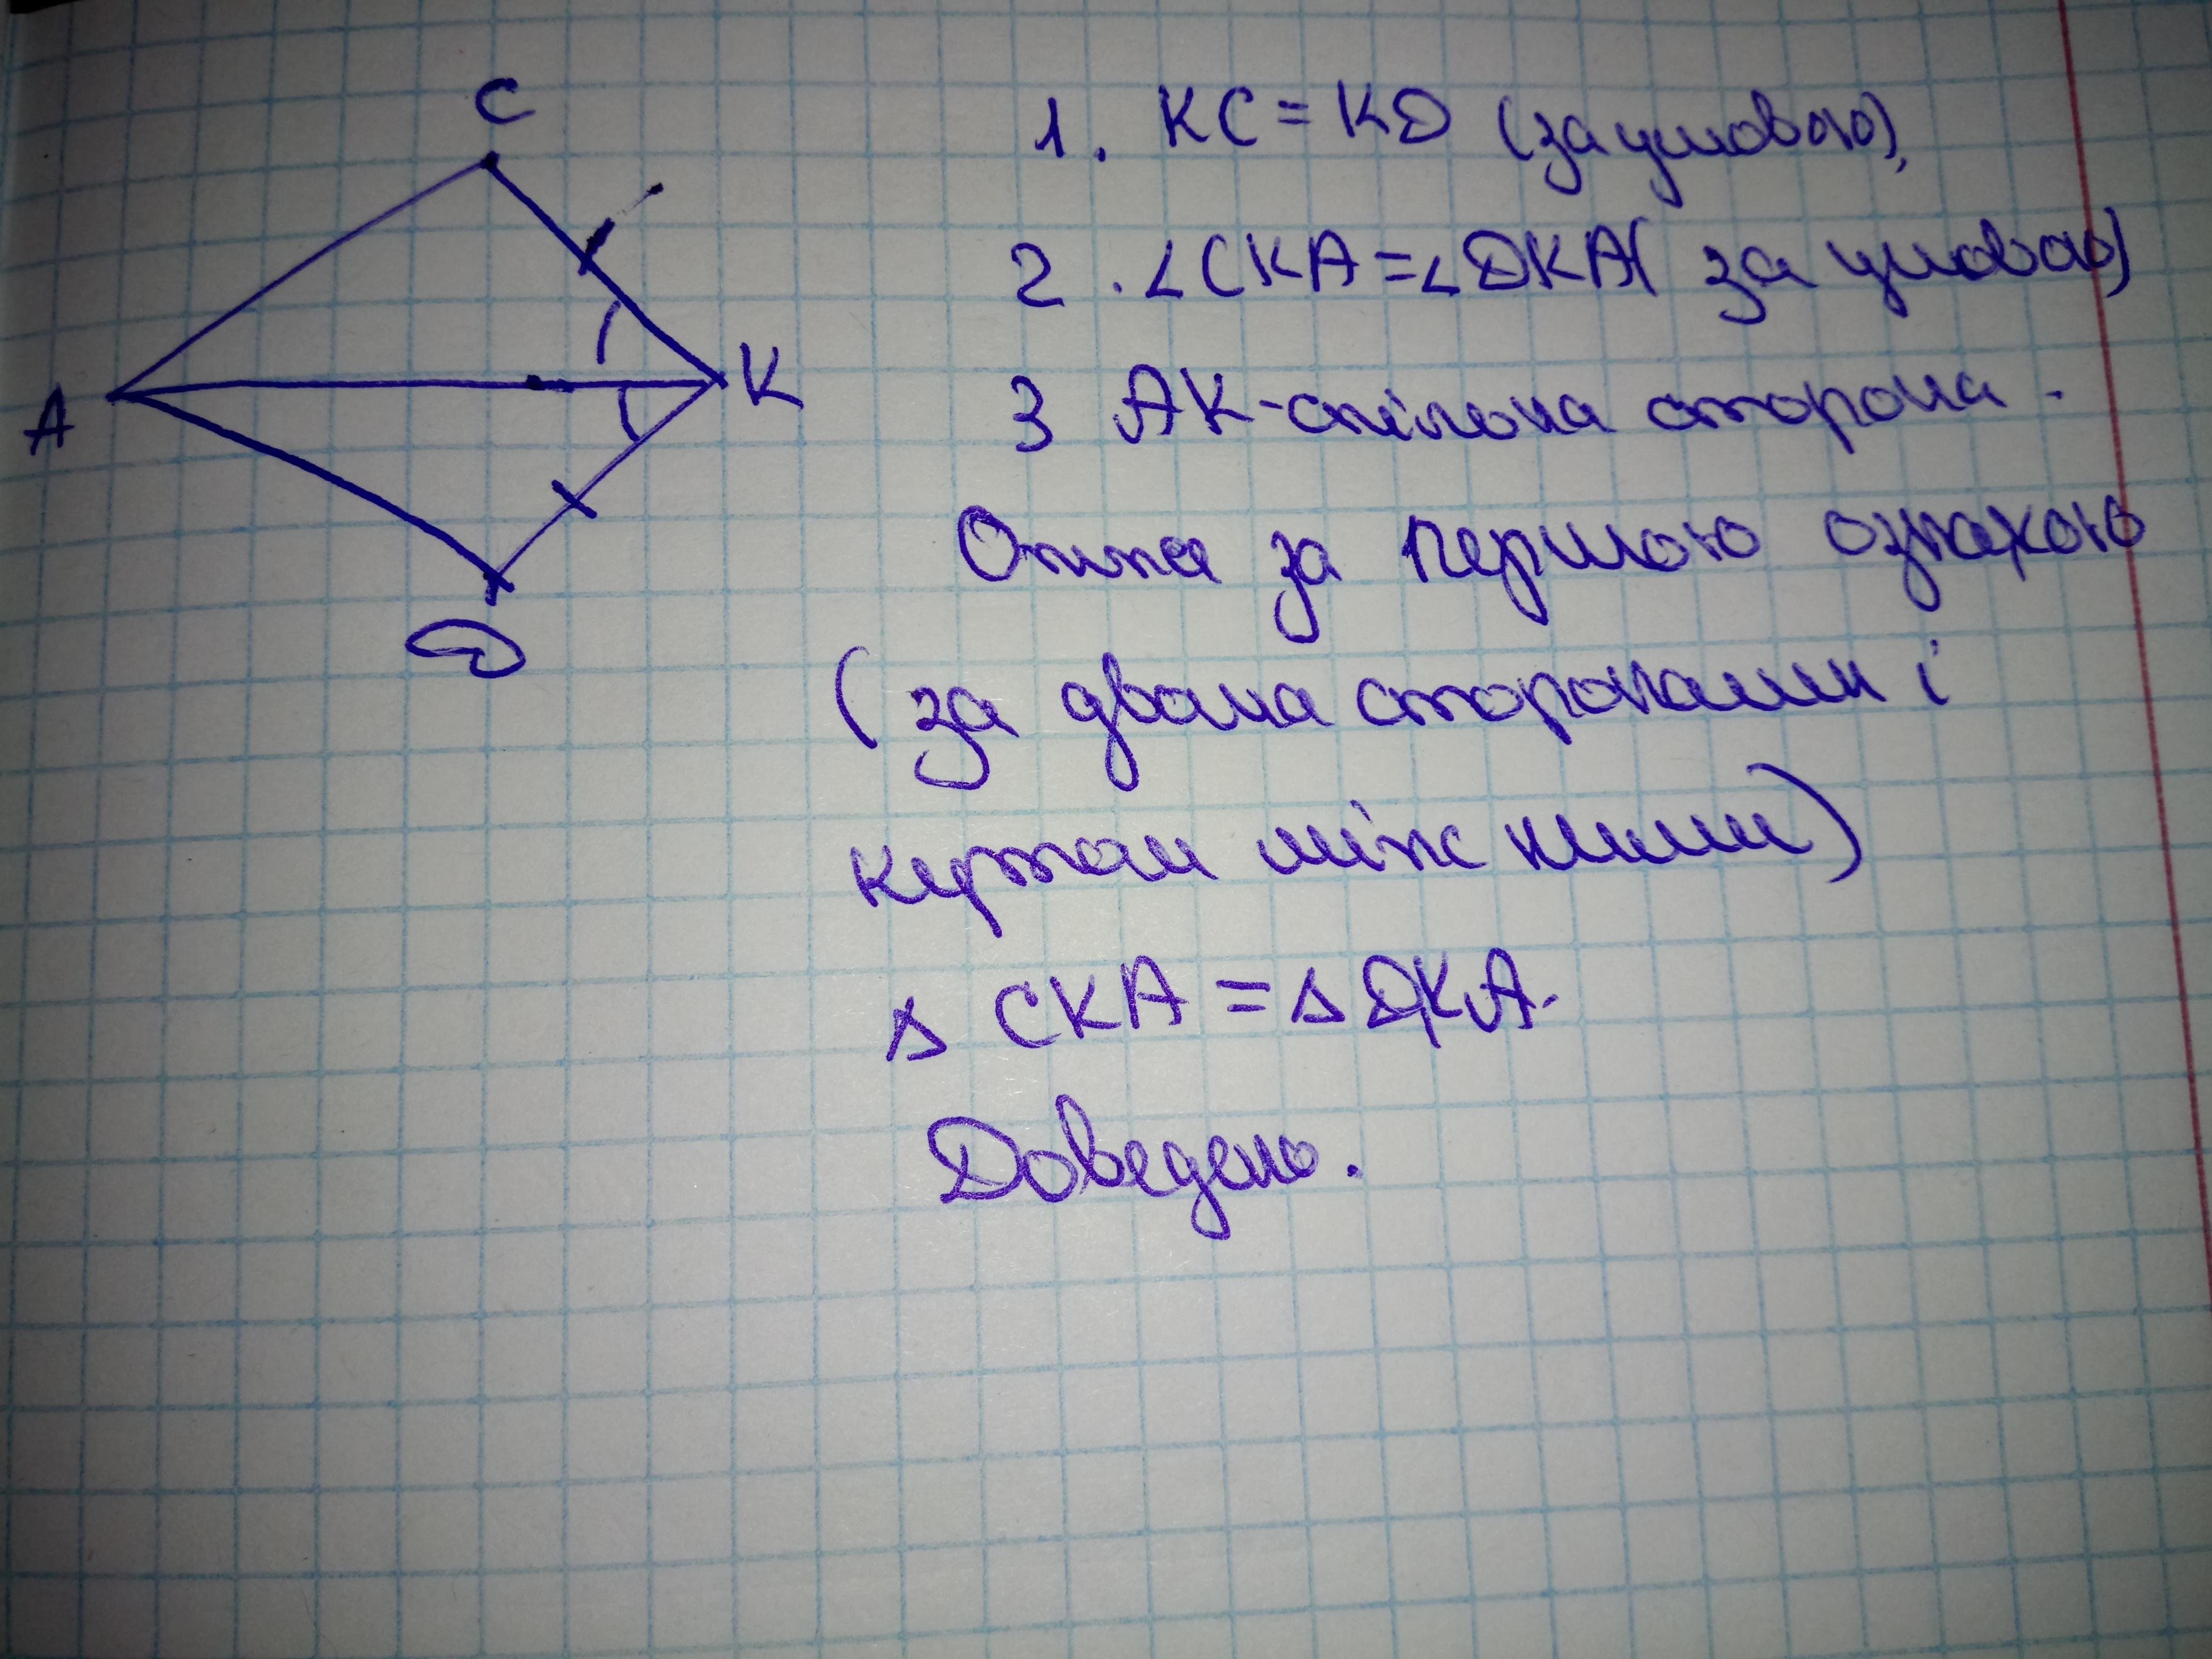 C
A
K
D
1. KC = KD (за умовою),
2. ∠CKA = ∠DKA( за умовою)
3 AK - спільна сторона.
Отже за першою ознакою
( за двома сторонами і
кутом між ними)
Δ CKA = Δ DKA.
Доведено.